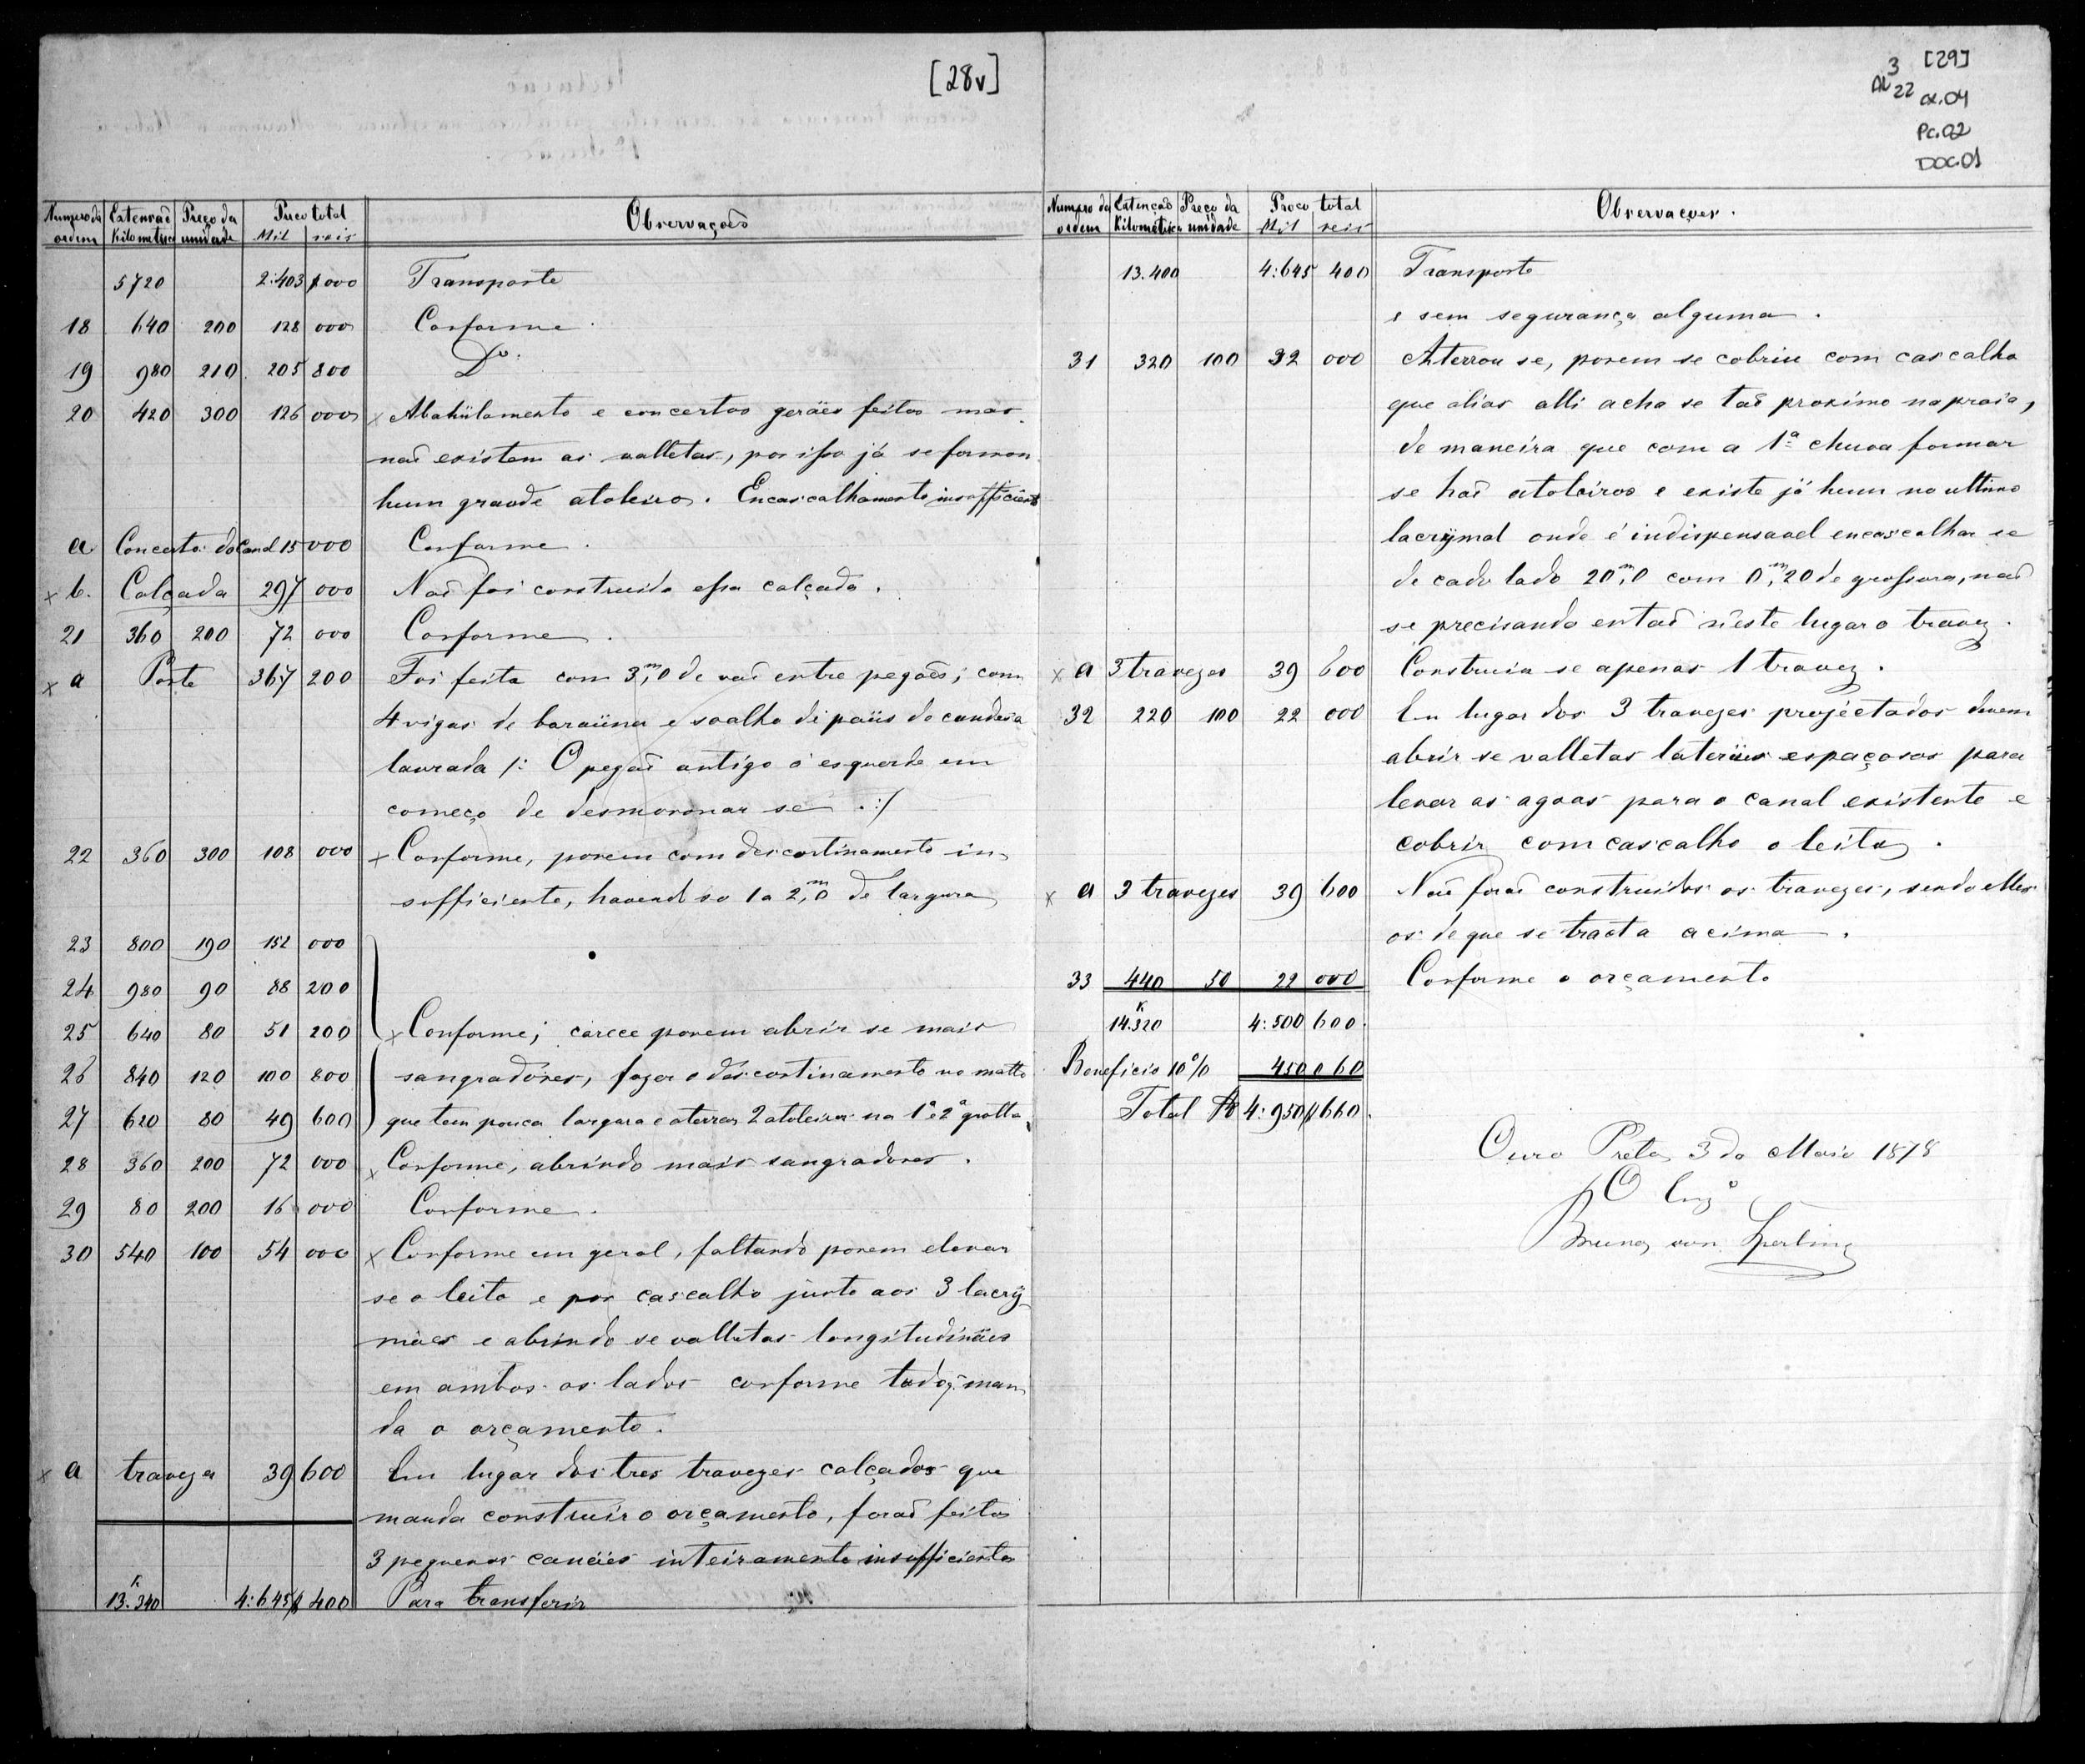 [28v]
Numero da ordem Extensaõ Kilometrica Preço da unidade Preco total Mil reis Observaçoẽs
5720 2:403$000 Transporte
18 640 200 128 000 Conforme.
19 980 210 205 800 Dº.
20 420 300 126 000 x Abahülamento e concertos geräes feitos mas
naõ existem as valletas, por isso já se formou
hum grande atoleiro. Encascalhamento insufficiente
a Concerto do Canal 15 000 Conforme.
x b. Calçada 297 000 Naõ foi construida essa calçada.
21 360 200 72 000 Conforme.
x a Ponte 367 200 Foi feita com 3,ᵐ0 de vaõ entre pegoẽs; com
4 vigas de baraüna e soalho de paüs de candeia
laurada /: O pegaõ antigo á esquerda em
começo de desmoronar se. :/
22 360 300 108 000 x Conforme, porem com descortinamento in-
sufficiente, havend so 1 a 2,ᵐ0 de largura
23 800 190 152 000
24 980 90 88 200
25 640 80 51 200 x Conforme; carece porem abrir se mais
26 840 120 100 800 sangradores, fazer o descortinamento no matto
27 620 80 49 600 que tem pouca largura e aterrar 2 atoleiros na 1ª e 2ª grotta.
28 360 200 72 000 x Conforme, abrindo mais sangradores.
29 80 200 16 000 Conforme.
30 540 100 54 000 x Conforme em geral, faltando porem elevar
se o leito e por cascalho junto aos 3 lacrÿ-
mäes e abrindo se valletas longitudinäes
em ambos os lados conforme tudo q. man
da o orçamento.
x a travezes 39 600 Em lugar dos tres travezes calçados que
manda construir o orçamento, foraõ feitos
3 pequenos canäes inteiramente insufficientes
13.ᴷ340 4:645$400 Para transferir
[29]
3
22 cx.04
Pc.02
DOC.01
Numero da ordem Extençaõ Kilometrica Preço da unidade Preco total Mil reis Observaçoes.
13.400 4:645 400 Transporte
e sem segurança alguma.
31 320 100 32 000 Aterrou se, porem se cobriu com cascalho
que alias alli acha se taõ proximo na praia,
de maneira que com a 1ª chuva formar
se haõ atoleiros e existe já hum no ultimo
lacrÿmal onde é indispensavel encascalhar se
de cada lado 20,ᵐ0 com 0,ᵐ20 de grossura, naõ
se precisando entaõ n'este lugar o travez.
x a 3 travezes 39 600 Construiu se apenas 1 travez.
32 220 100 22 000 Em lugar dos 3 travezes projectados devem
abrir se valletas lateräes espaçosas para
levar as agoas para o canal existente e
cobrir com cascalho o leito.
x a 3 travezes 39 600 Naõ foraõ construidos os travezes, sendo elles
os de que se tracta acima.
33 440 50 22 000 Conforme o orçamento
14.ᴷ320 4:500 600.
Beneficio 10% 450 060
Total Rs 4:950$660.
Ouro Preto, 3 de Maio 1878
O Engº
Bruno von Sperling